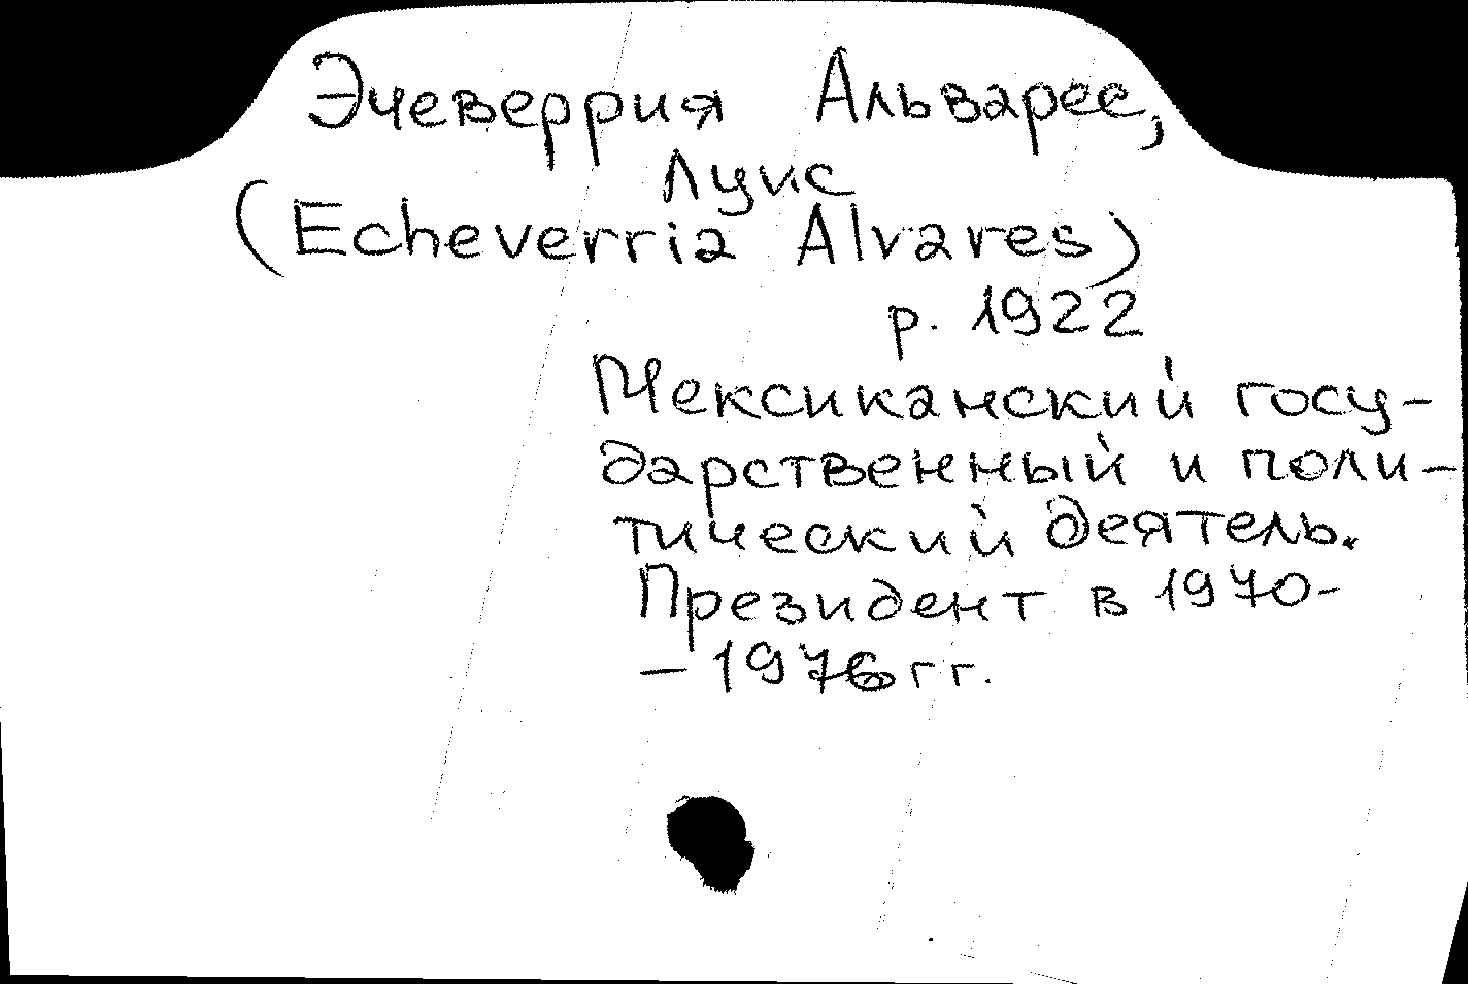 Эчеверрия Альварес,
Луис
(Echeverria Alvares)
р. 1922
Мексиканский госу-
дарственный и поли-
тический деятель.
Президент в 1970-
- 1976 гг.